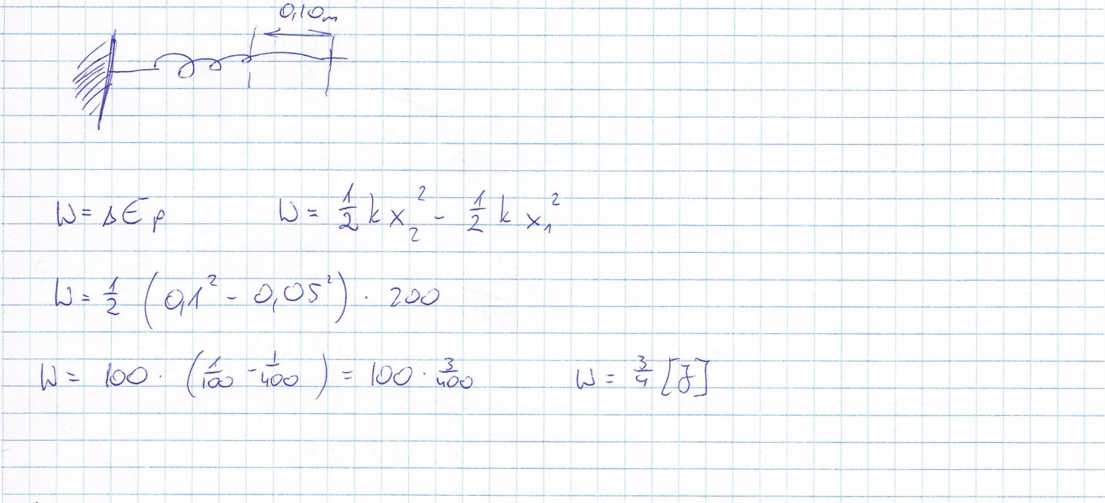 0,10m
W = ΔEp W = 1/2 k x₂² - 1/2 k x₁²
W = 1/2 (0,1² - 0,05²) · 200
W = 100 · (1/100 - 1/400) = 100 · 3/400 W = 3/4 [J]